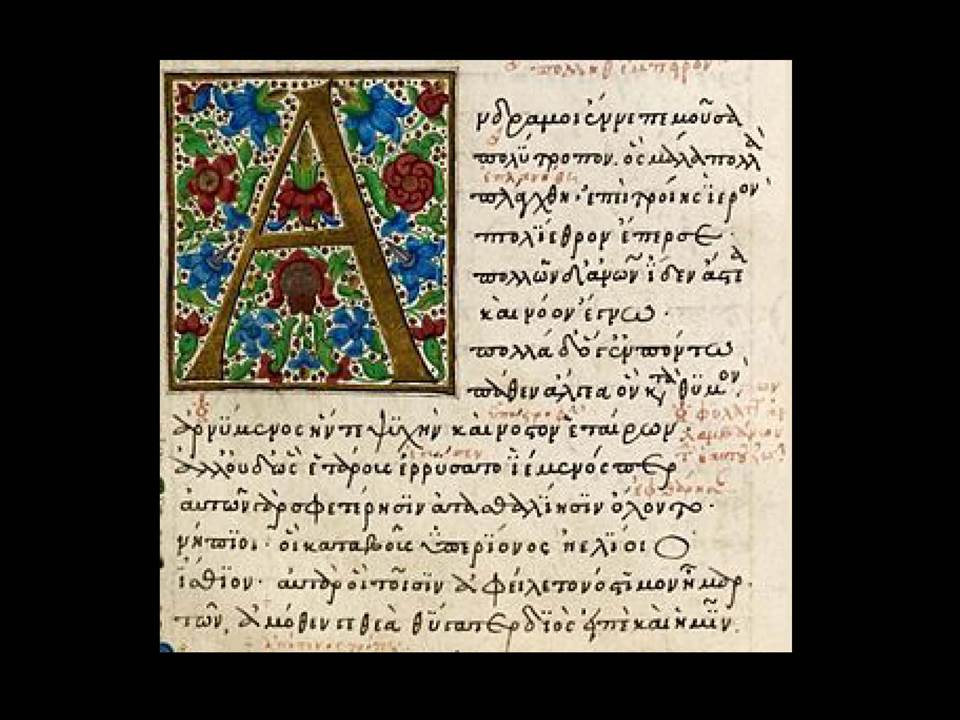 Α
νδρα μοι έννεπε μοῦσα
πολύτροπον. ὃς μάλα πολλὰ
πλάγχθη· ἐπεὶ τροίης ἱερὸν
πτολίεθρον ἔπερσε·
πολλῶν δ' ἀνθρώπων ἴδεν ἄστεα
καὶ νόον ἔγνω·
πολλὰ δ' ὅ γ' ἐν πόντω
πάθεν ἄλγεα ὃν κατὰ θυμόν·
ἀρνύμενος ἥν τε ψϋχὴν καὶ νόστον ἑταίρων·
ἀλλ' οὐδ' ὣς ἑτάρους ἐρρύσατο ϊέμενός περ
αὐτῶν γὰρ σφετέρησϊν ἀτασθαλίησϊν ὄλοντο·
νήπϊοι· οἳ κατὰ βοῦς ὑπερϊονος ἠελϊοιο
ἤσθϊον· αὐτὰρ ὁ τοῖσϊν ἀφείλετο νόστιμον ἦμαρ.
τῶν, ἁμόθεν γε θεὰ θύγατερ δϊὸς εἰπὲ καὶ ἡμῖν.